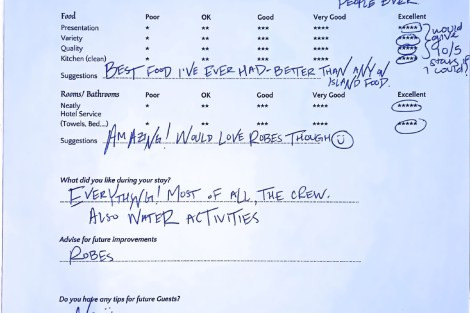 PEOPLE EVER
Food Poor OK Good Very Good Excellent
Presentation * ** *** **** ***** would
Variety * ** *** **** ***** give
Quality * ** *** **** ***** 90/5
Kitchen (clean) * ** *** **** ***** stars if
I could!
Suggestions BEST FOOD I'VE EVER HAD - BETTER THAN ANY ON
ISLAND FOOD.
Rooms/ Bathrooms Poor OK Good Very Good Excellent
Neatly * ** *** **** *****
Hotel Service
(Towels, Bed...) * ** *** **** *****
Suggestions AMAZING! WOULD LOVE ROBES THOUGH
What did you like during your stay?
EVERYTHING! MOST OF ALL, THE CREW.
ALSO WATER ACTIVITIES
Advise for future improvements
ROBES
Do you have any tips for future Guests?